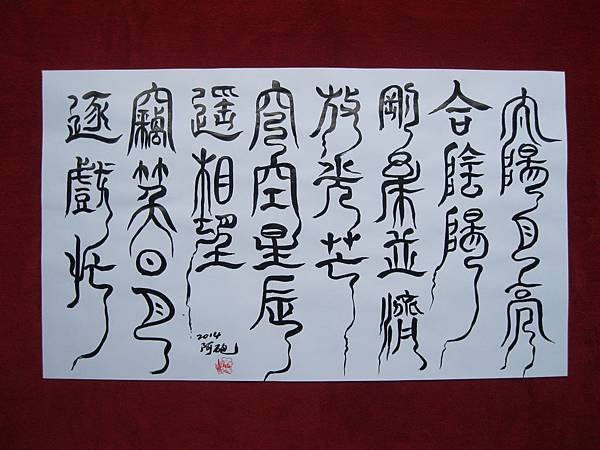 太陽月亮
合陰陽
剛柔並濟
放光芒
穹空星辰
遙相望
竊笑日月
逐戲忙
2014